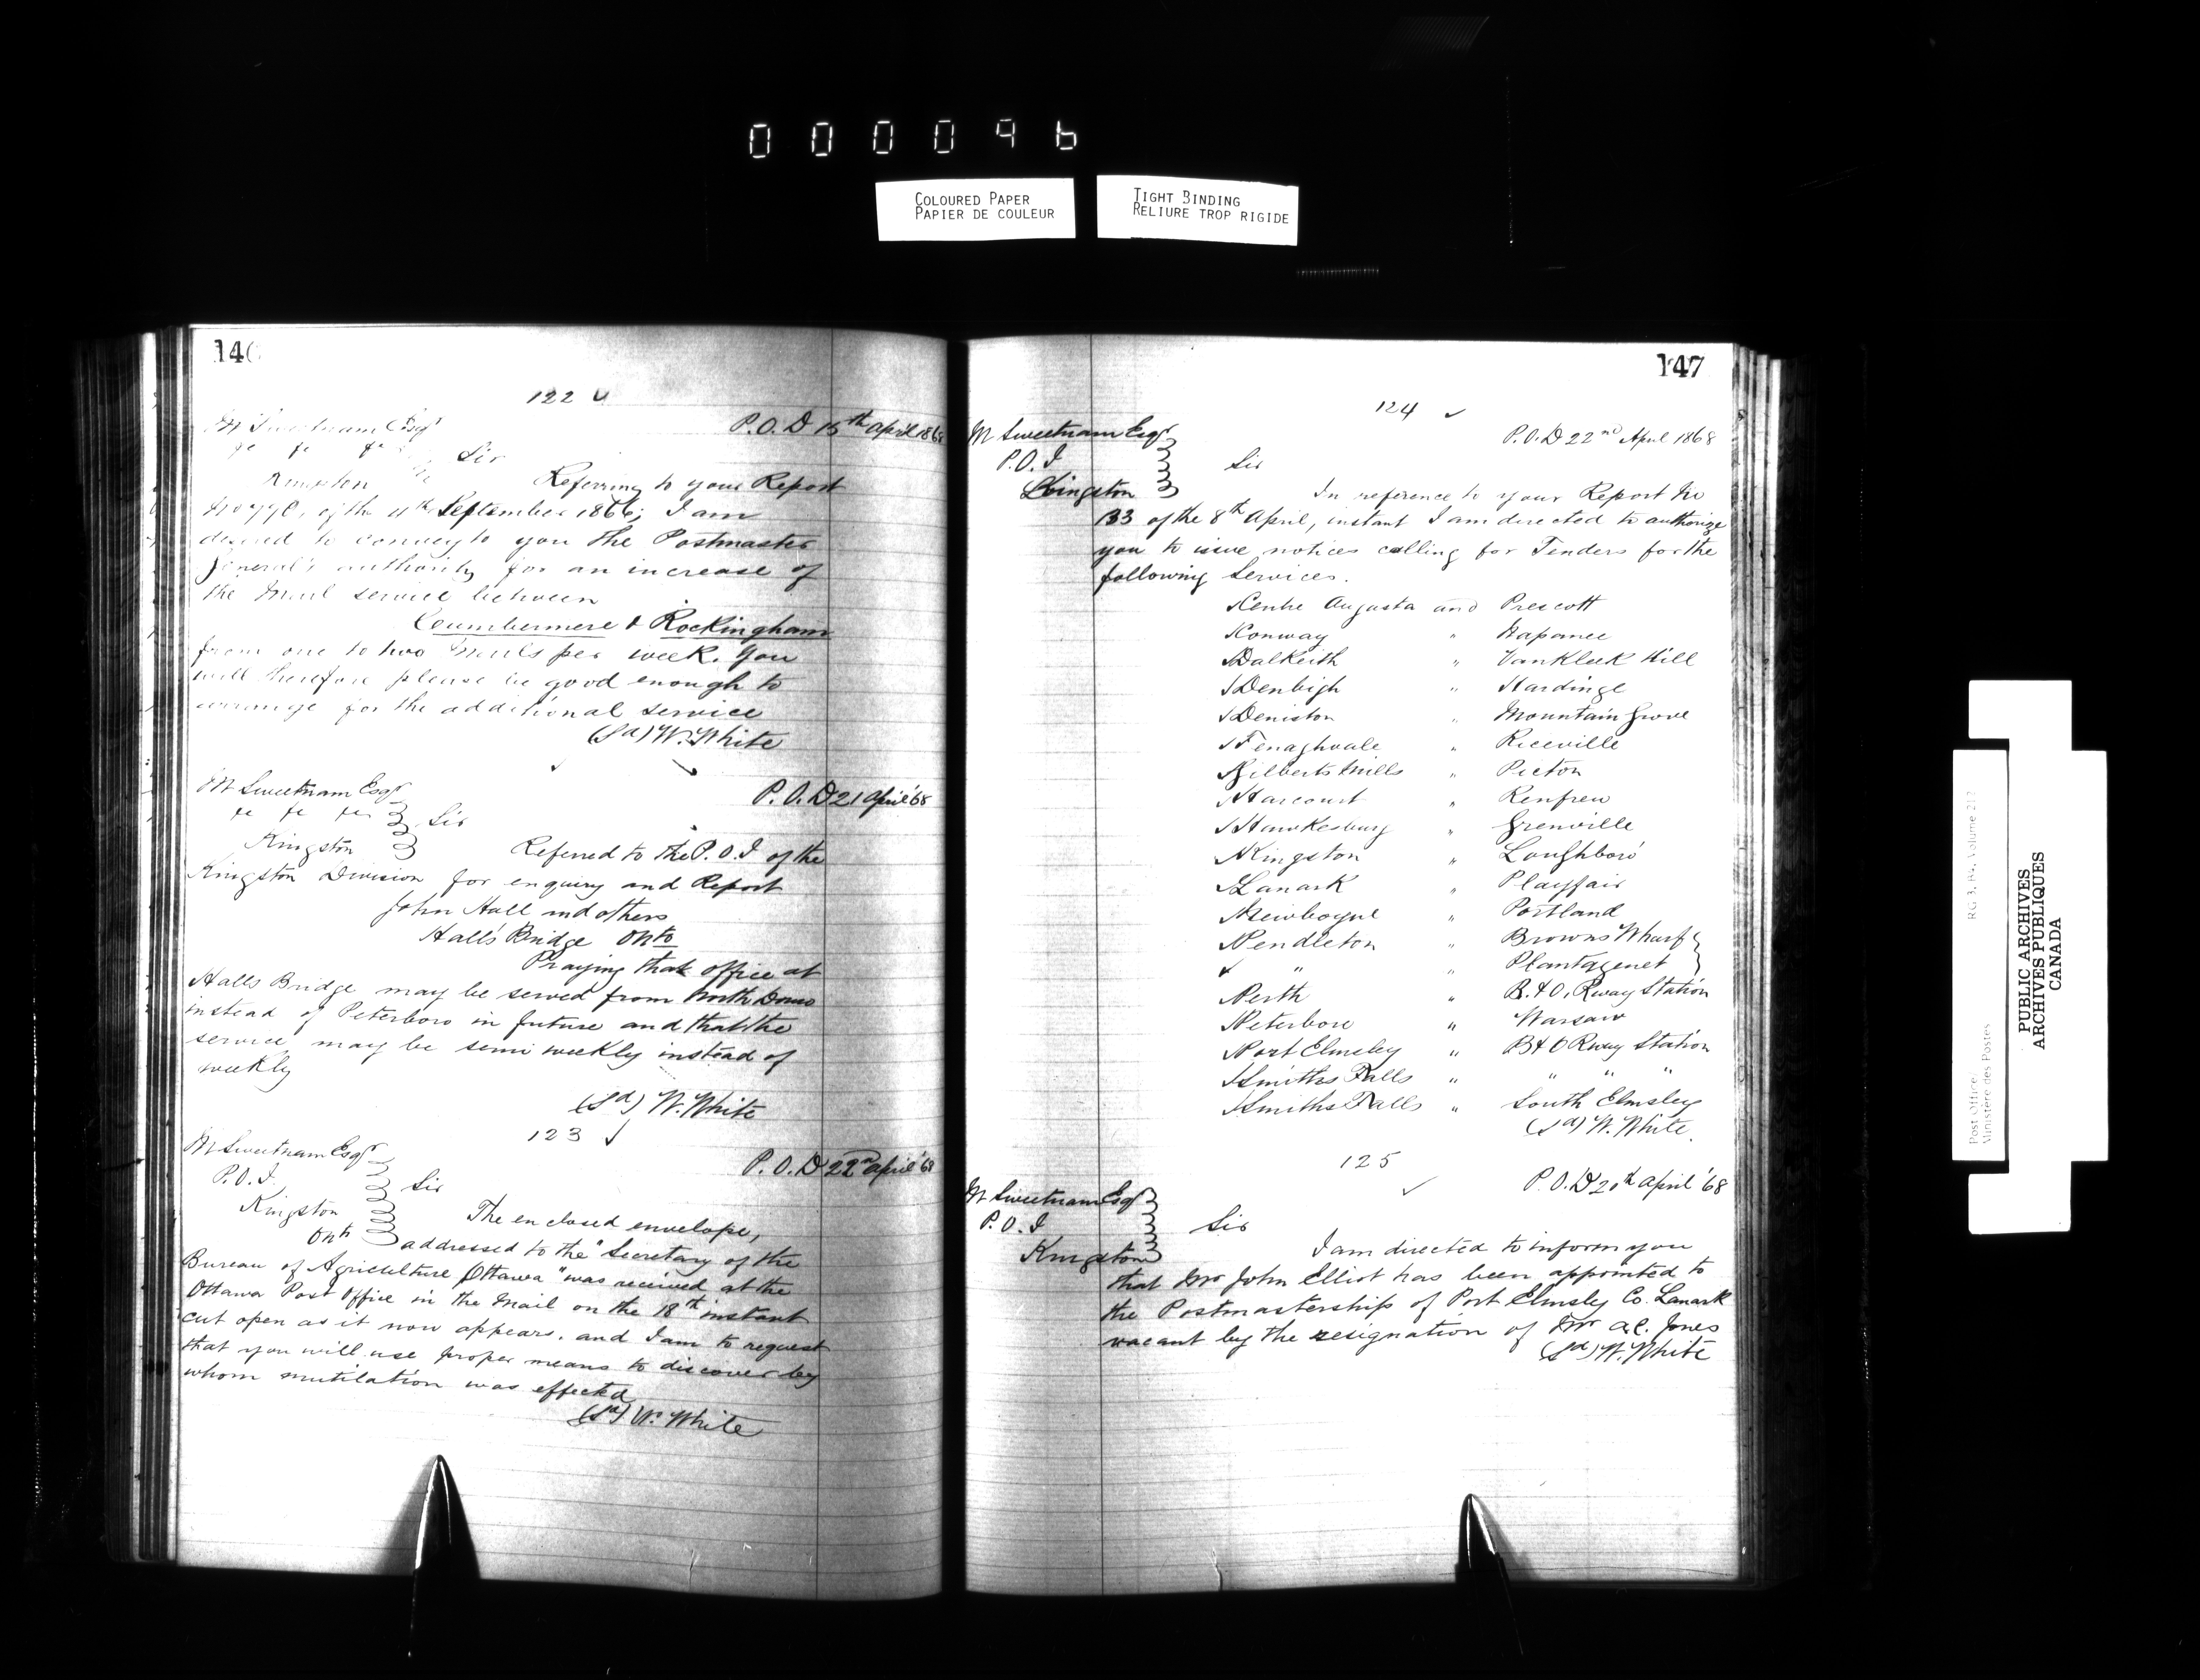 000096
COLOURED PAPER
PAPIER DE COULEUR
TIGHT BINDING
RELIURE TROP RIGIDE
146
122
M Sweetnam Esqr
P.O.D 15th April 1868
&c &c &c
Sir
Kingston
Referring to your Report
of the 11th September 1866; I am
desired to convey to you the Postmaster
General's authority for an increase of
the Mail service between
Coumbermere & Rockingham
from one to two Mails per week. You
will therefore please be good enough to
arrange for the additional service
(Sd) W. White
M Sweetnam Esqr
P.O.D 21 April '68
&c &c &c
Sir
Kingston
Referred to the P.O.I of the
Kingston Division for enquiry and Report
John Hall and others
Hall's Bridge Onto
Praying that office at
Halls Bridge may be served from North Douro
instead of Peterboro in future and that the
service may be semi weekly instead of
weekly
(Sd) W. White
123
M Sweetnam Esqr
P.O.D 22nd April '68
P.O.I.
Sir
Kingston
Onto
The enclosed envelope,
addressed to the "Secretary of the
Bureau of Agriculture Ottawa" was received at the
Ottawa Post Office in the Mail on the 18th instant
cut open as it now appears. and I am to request
that you will use proper means to discover by
whom mutilation was effected
(Sd) W. White
147
124
M Sweetnam Esqr
P.O.D 22nd April 1868
P.O.I
Sir
Kingston
In reference to your Report No
133 of the 8th April, instant I am directed to authorize
you to issue notices calling for Tenders for the
following Services.
Centre Augusta and Prescott
Conway " Napanee
Dalkeith " VanKleek Hill
Denbigh " Hardinge
Deniston " Mountain Grove
Fenaghvale " Riceville
Gilberts Mills " Picton
Harcourt " Renfrew
Hawkesbury " Grenville
Kingston " Loughboro'
Lanark " Playfair
Newboyne " Portland
Pendleton " Browns Wharf
" " Plantagenet
Perth " B. & O. Rway Station
Peterboro " Warsaw
Port Elmsley " B & O Rway Station
Smiths Falls " " " "
Smiths Falls " South Elmsley
(Sd) W. White.
125
P.O.D 20th April '68
M Sweetnam Esqr
P.O.I
Sir
Kingston
I am directed to inform you
that Mr John Elliot has been appointed to
the Postmastership of Port Elmsley Co. Lanark
vacant by the resignation of Mr A.C. Jones
(Sd) W. White
Post Office
Ministère des Postes
RG 3, B4, Volume 212
PUBLIC ARCHIVES
ARCHIVES PUBLIQUES
CANADA